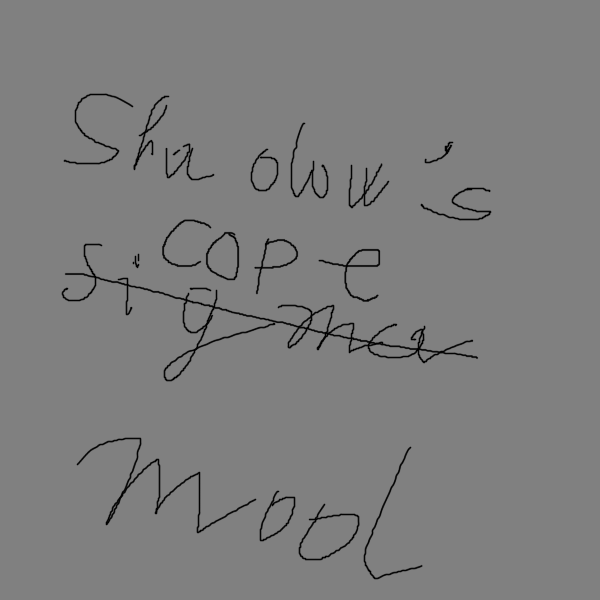 Shadow's
cope
sigma
mood